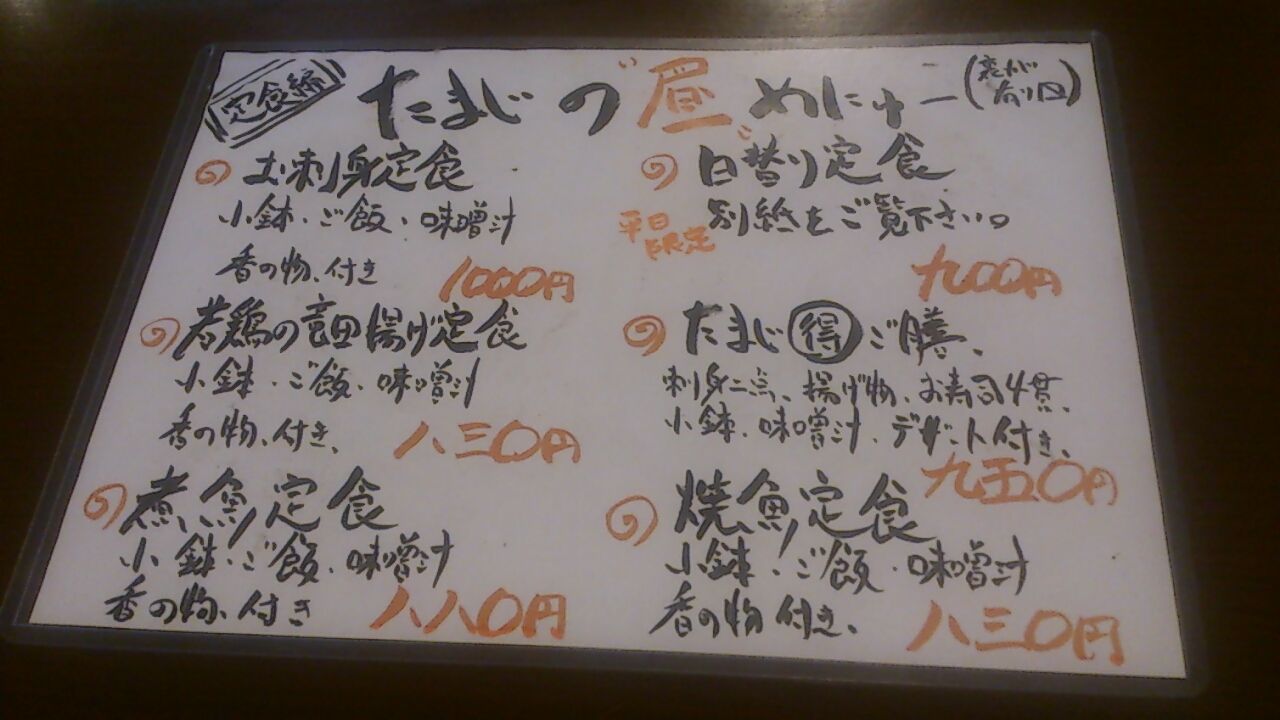 定食編
たまじの昼めにゅー
(裏面有り□)
お刺身定食
小鉢・ご飯・味噌汁
香の物、付き
1000円
若鶏の竜田揚げ定食
小鉢・ご飯・味噌汁
香の物、付き、
八三〇円
煮魚定食
小鉢・ご飯・味噌汁
香の物、付き
八八〇円
日替り定食
平日限定
別紙をご覧下さい。
九〇〇円
たまじ得ご膳、
刺身二点、揚げ物、お寿司4貫、
小鉢・味噌汁・デザート付き、
九五〇円
焼魚定食
小鉢・ご飯・味噌汁
香の物付き、
八三〇円